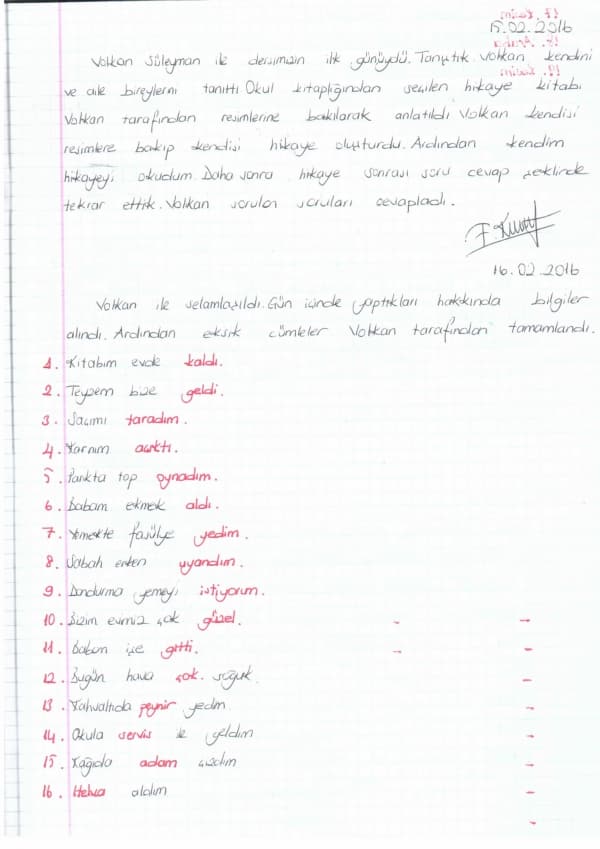 15.02.2016
Volkan Süleyman ile dersimizin ilk günüydü. Tanıştık. Volkan kendini
ve aile bireylerini tanıttı Okul kitaplığından seçilen hikaye kitabı
Volkan tarafından resimlerine bakılarak anlatıldı Volkan kendisi
resimlere bakıp kendisi hikaye oluşturdu. Ardından kendim
hikayeyi okudum. Daha sonra hikaye sonrası soru cevap şeklinde
tekrar ettik. Volkan sorulan soruları cevapladı.
16.02.2016
Volkan ile selamlaşıldı. Gün içinde yaptıkları hakkında bilgiler
alındı. Ardından eksik cümleler Volkan tarafından tamamlandı.
1. Kitabım evde kaldı.
2. Teyzem bize geldi.
3. Saçımı taradım.
4. Karnım acıktı.
5. Parkta top oynadım.
6. Babam ekmek aldı.
7. Yemekte fasülye yedim.
8. Sabah erken uyandım.
9. Dondurma yemeyi istiyorum.
10. Bizim evimiz çok güzel.
11. Babam işe gitti.
12. Bugün hava çok. soğuk.
13. Kahvaltıda peynir yedim
14. Okula servis ile geldim
15. Kağıda adam çizdim
16. Helva aldım